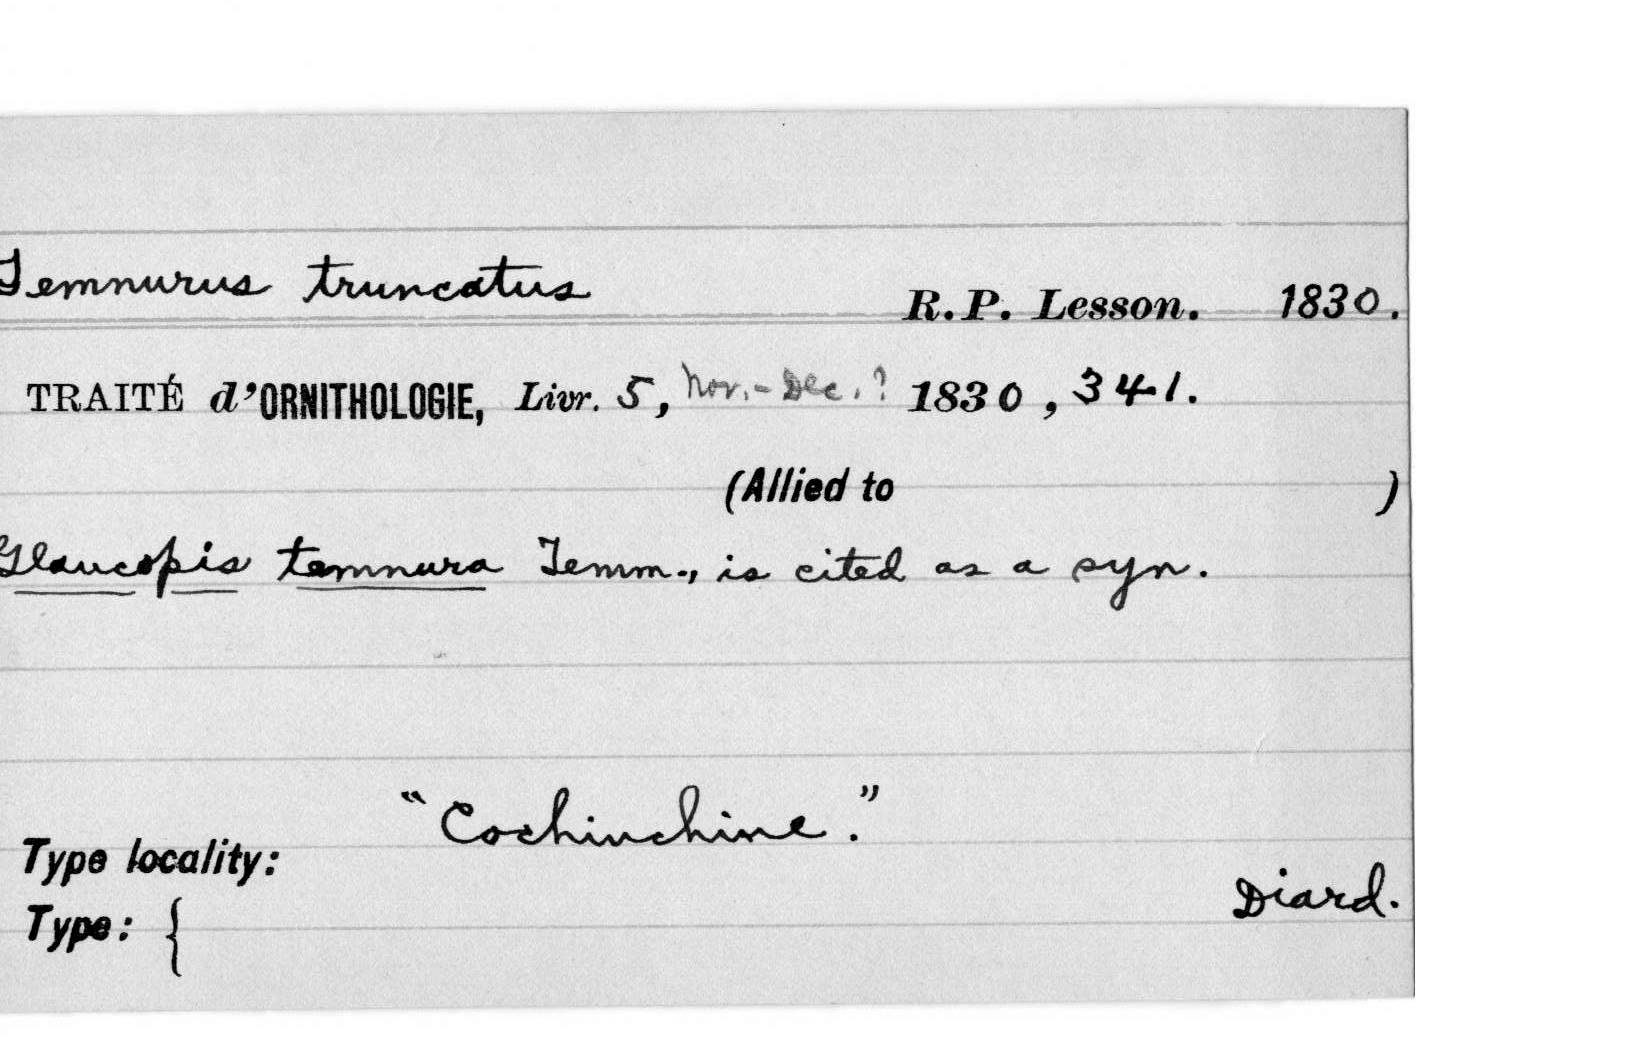 Temnurus truncatus R. P. Lesson. 1830.
TRAITÉ d'ORNITHOLOGIE, Livr. 5, Nov.-Dec.? 1830, 341.
(Allied to )
Glaucopis temnura Temm., is cited as a syn.
"Cochinchine."
Type locality:
Diard.
Type: {